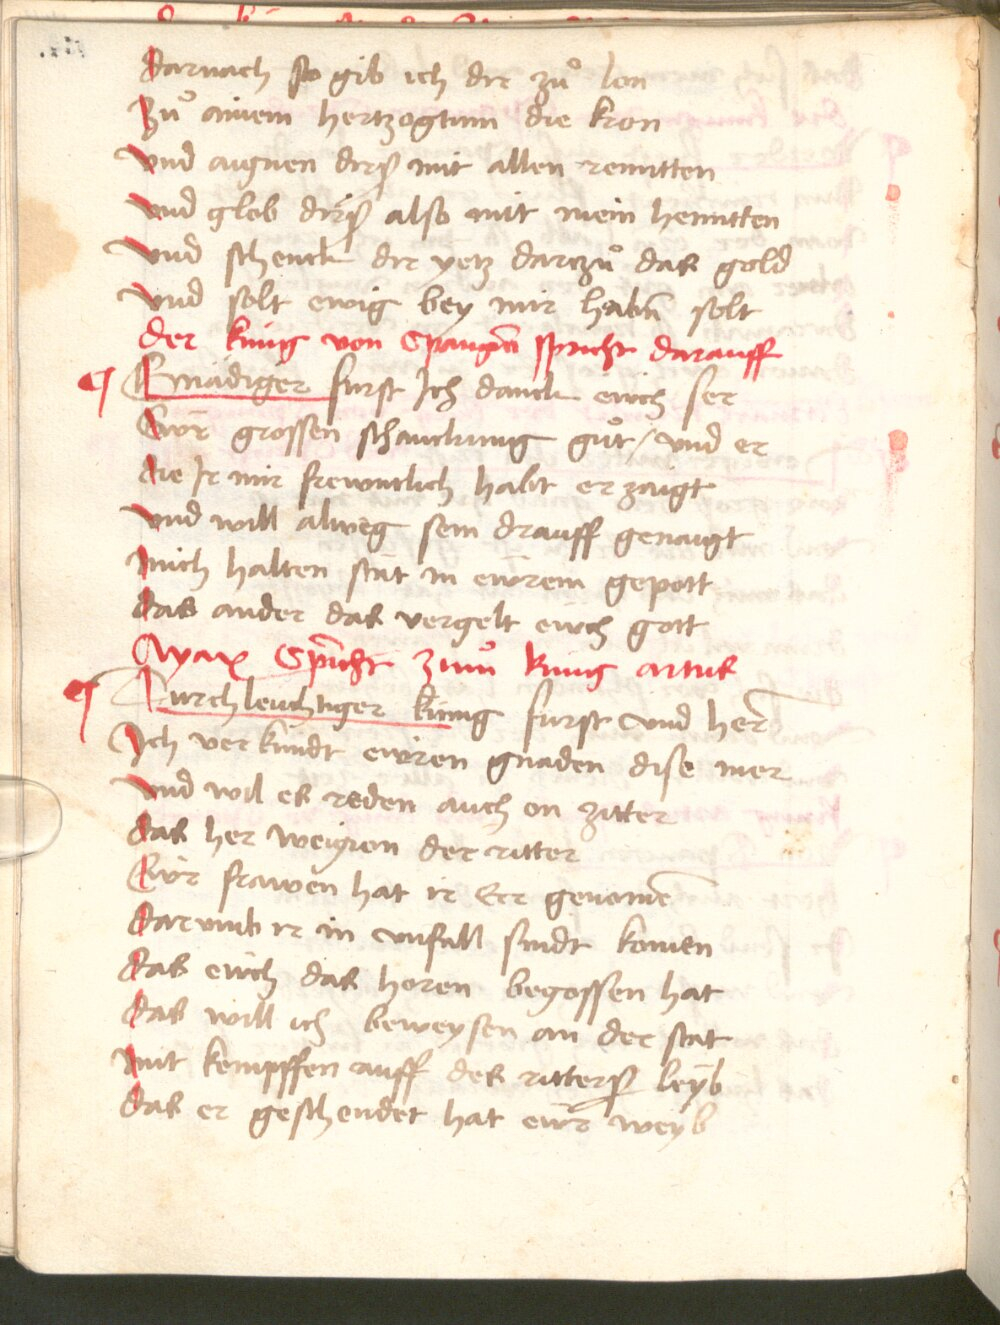 darnach so gib ich dir zuͦ lon
Zuͦ ainem hertzogtum die kron
vnd aignen dirs mit allen renntten
vnd glob dirs also mit mein henntten
vnd schenck dir yetz darzuͦ das gold
vnd solt ewig bey mir habn̄ solt
der king von Spangn̄ spricht darauff
¶ Gnädiger furst Ich danck eẅch ser
Ewr̄ grossen schanckung guͦt / vnd er
die Ir mir frewntlich habt erzaigt
vnd will alweg sein drauff genaigt
mich halten stät in ewrem gepott
das ander das vergelt eẅch gott
Ayax Sp̄icht zum king artus
¶ Durchleuchtiger king furst vnd her̄
Ich verkündt eẅren gnaden dise mer
vnd wil es reden auch on zitter
das her weigion der ritter
Eẅr frawen hat ir Eer genomē
darvmb ir in vnfall sindt komen
das eẅch das horen begossen hat
das will ich beweysen an der stat
mit kempffen auff des ritters leyb
das er geschendet hat eẅr weyb